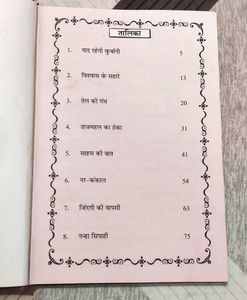 तालिका
1. याद रहेगी कुर्बानी 5
2. विश्वास के सहारे 13
3. तेल की गंध 20
4. ताजमहल का ठेका 31
5. साहस की बात 41
6. नर-कंकाल 54
7. जिंदगी की वापसी 63
8. नन्हा सिपाही 75